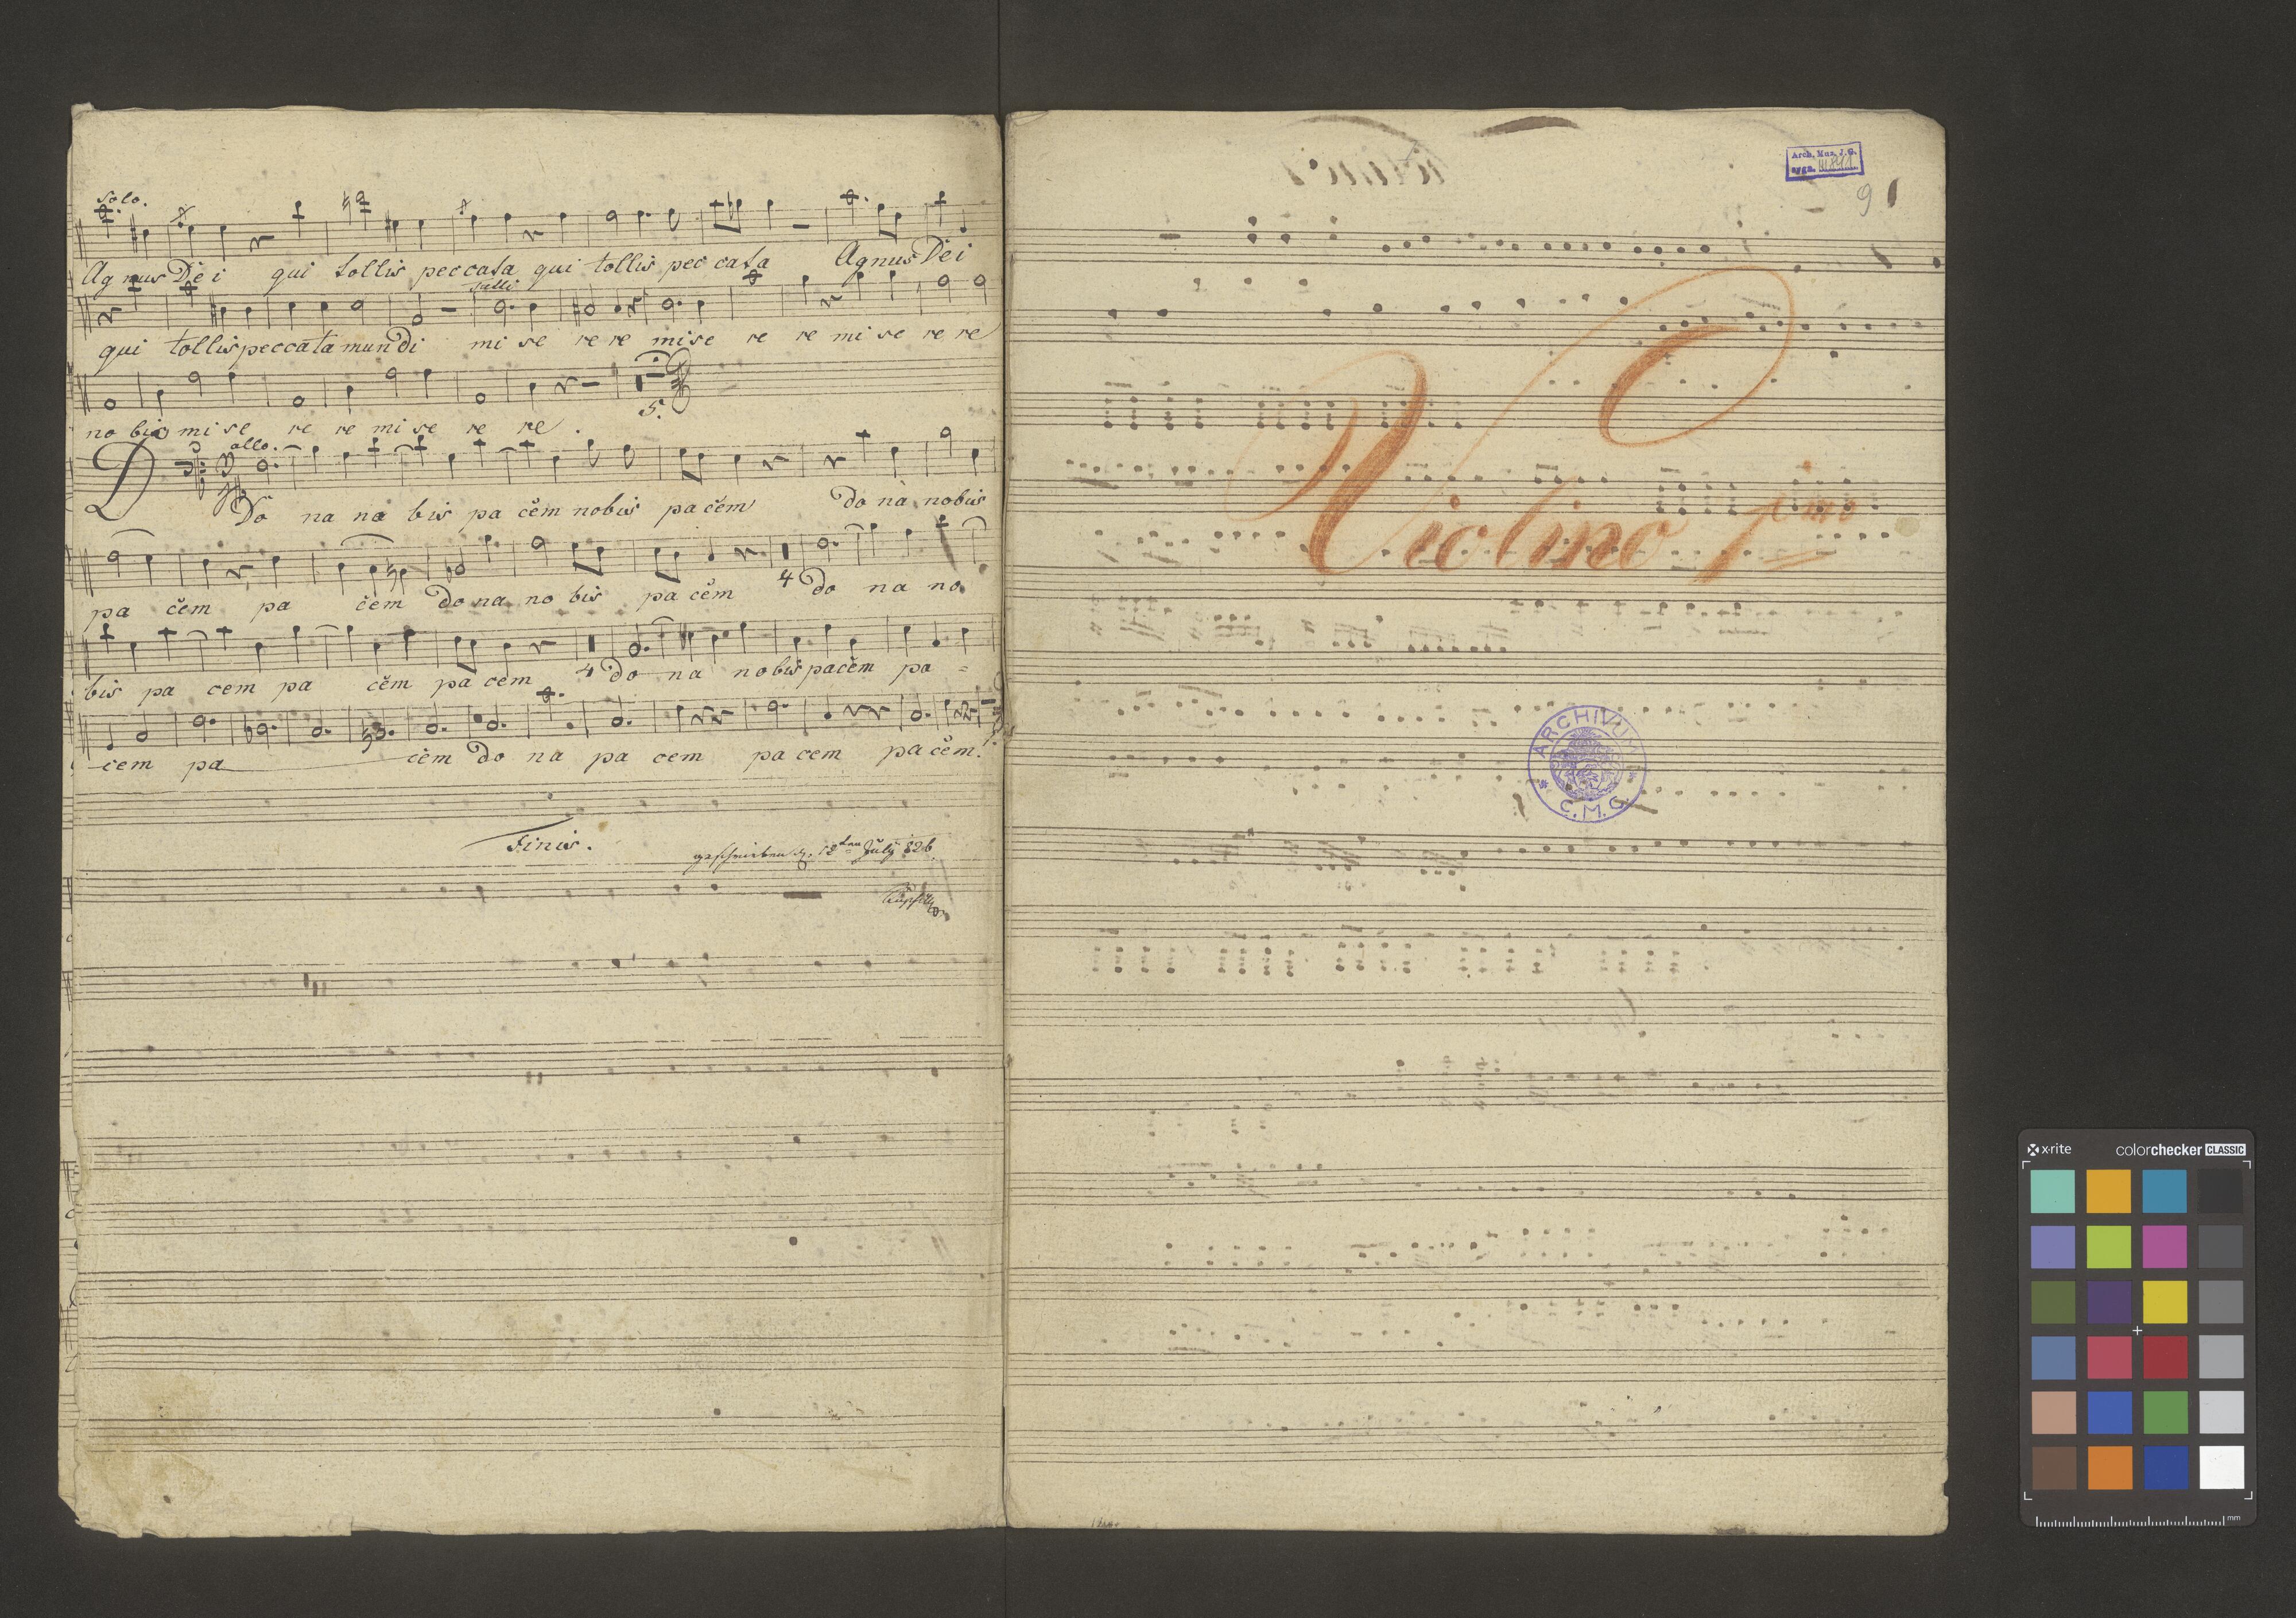 Solo.
Agnus Dei qui tollis peccata qui tollis peccata Agnus Dei
tutti
qui tollis peccata mundi mi se re re mise re re mi se re re
no bis mi se re re mi se re re.
5.
allo.
Do na no bis pa cem nobis pa cem do na nobis
pa cem pa cem do na no bis pa cem 4 do na no
bis pa cem pa cem pa cem 4 do na nobis pacem pa =
cem pa cem do na pa cem pa cem pa cem.
Finis.
geschrieben d. 18ten July 826.
Arch. Muz. J.G.
sygn.
91
Violino 1mo
ARCHIVUM
C.M.C.
x-rite
colorchecker CLASSIC
mm